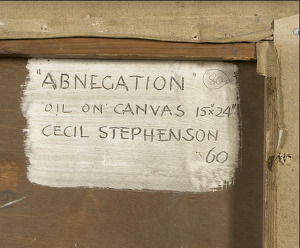 "ABNEGATION" 80
OIL ON CANVAS 15"x24"
CECIL STEPHENSON
60